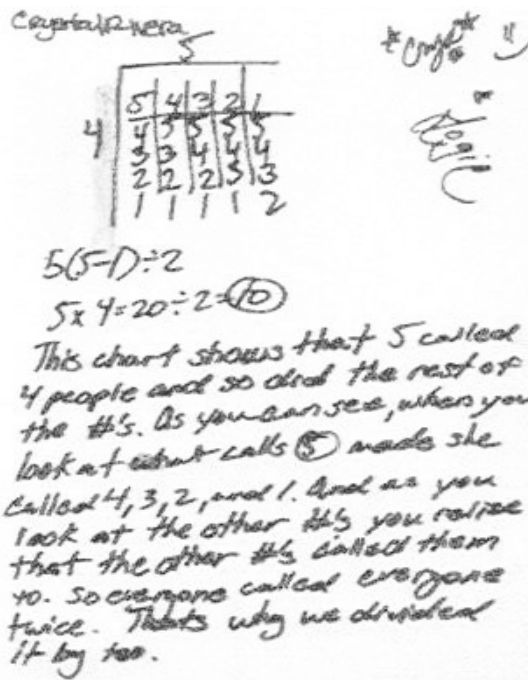 Crystal Rivera
5
5 4 3 2 1
4 4 5 5 5 5
3 3 4 4 4
2 2 2 3 3
1 1 1 1 2
5(5-1)÷2
5x4=20÷2=10
This chart shows that 5 called
4 people and so did the rest of
the #'s. As you can see, when you
look at what calls 5 made she
called 4, 3, 2, and 1. And as you
look at the other #'s you realize
that the other #'s called them
to. So everyone called everyone
twice. Thats why we divided
it by too.